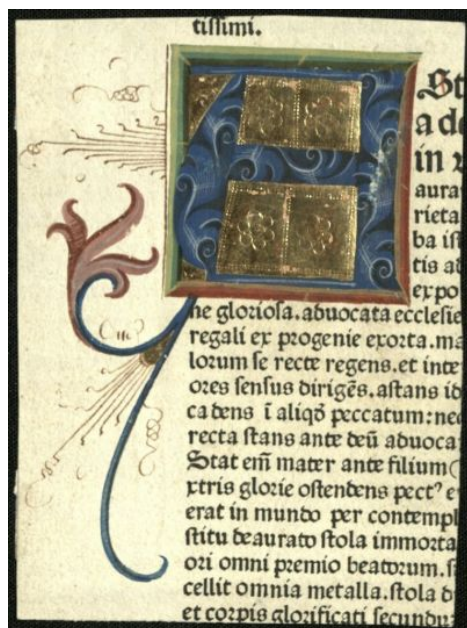 tissimi.
St
a de
in v
aura
rieta
ba ist
tis ad
expo
ne gloriosa. advocata ecclesie
regali ex progenie exorta. ma
lorum se recte regens. et inte
ores sensus dirigēs. astans id
cadens ī aliqđ peccatum: nec
recta stans ante deū advoca
Stat em̄ mater ante filium
xtris glorie ostendens pectꝰ e
erat in mundo per contempl
stitu deaurato stola immorta
ori omni premio beatorum. s
cellit omnia metalla. stola d
et corpis glorificati secundu